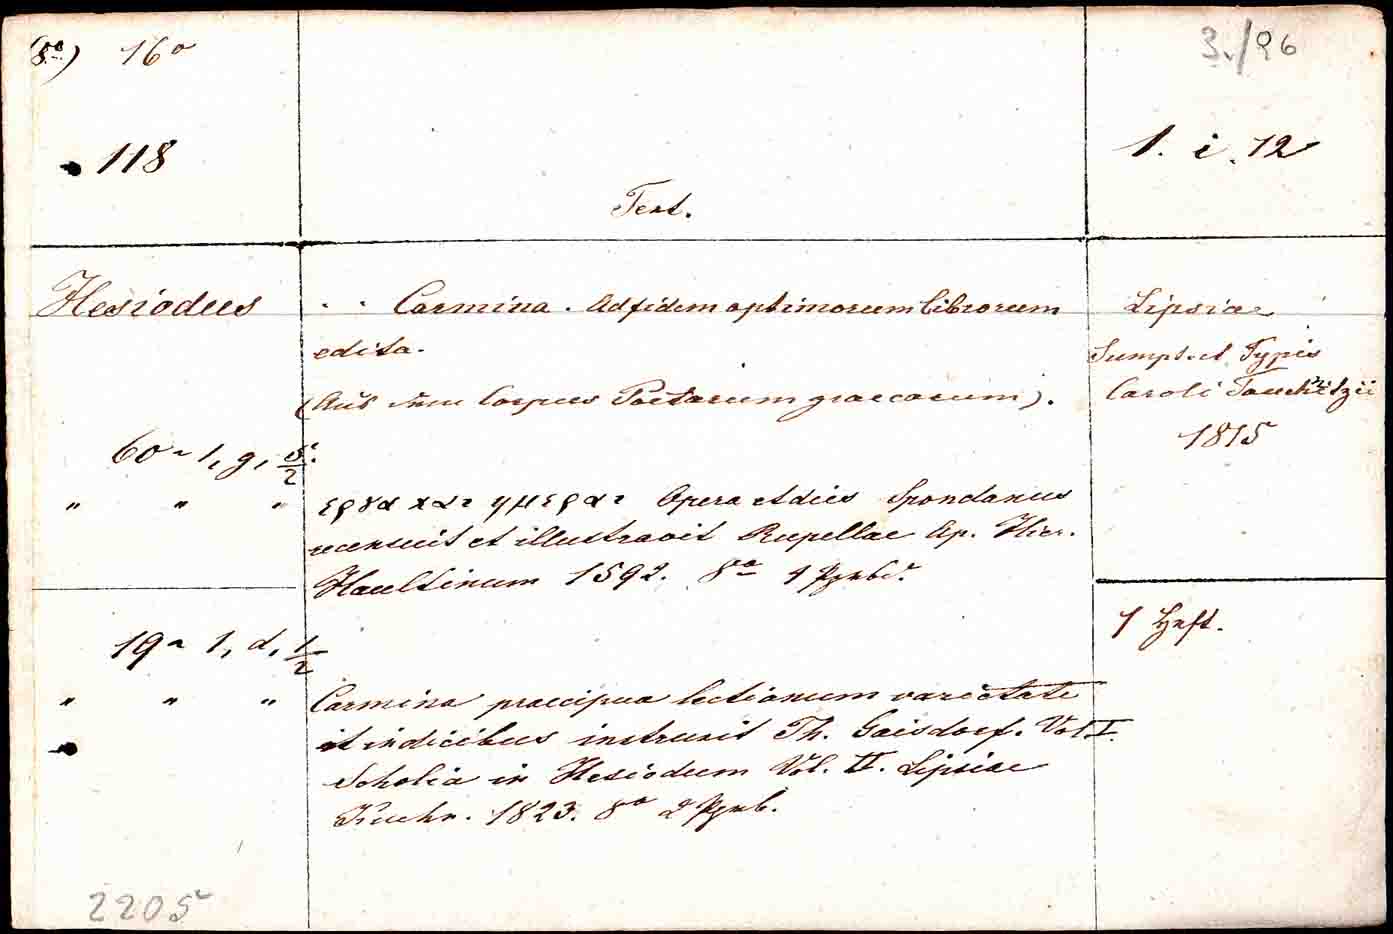 (8º) 16º
3./96
118
1. i. 12
Text.
Hesiodus
. . Carmina. Ad fidem optimorum librorum
edita.
(Aus dem Corpus Poetarum graecorum).
Lipsiae
Sumpt. et Typis
Caroli Tauchnitzii
1815
60 ~ 1, g, 5/2
" " " εργα και ημεραι Opera et dies Spondanus
recensuit et illustravit Rupellae Ap. Hier.
Haultinum 1592. 8º 1 Pgmbd.
1 Heft.
19 ~ 1, d, 1/2
" " " Carmina praecipua lectionum varietate
et indicibus instruxit Th. Gaisdorf. Vol. I.
Scholia in Hesiodum Vol. II. Lipsiae
Kuehn. 1823. 8º 2 Pgmb.
2205